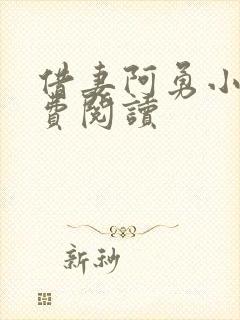 借妻阿勇小
費閱讀
新秒